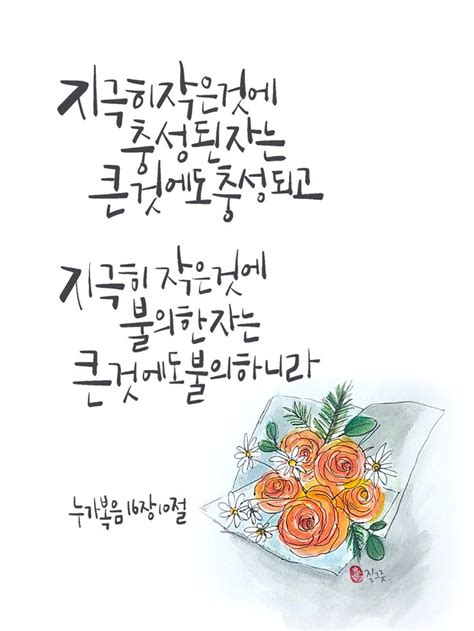 지극히 작은 것에
충성된 자는
큰 것에도 충성되고
지극히 작은 것에
불의한 자는
큰 것에도 불의하니라
누가복음 16장 10절
질그릇